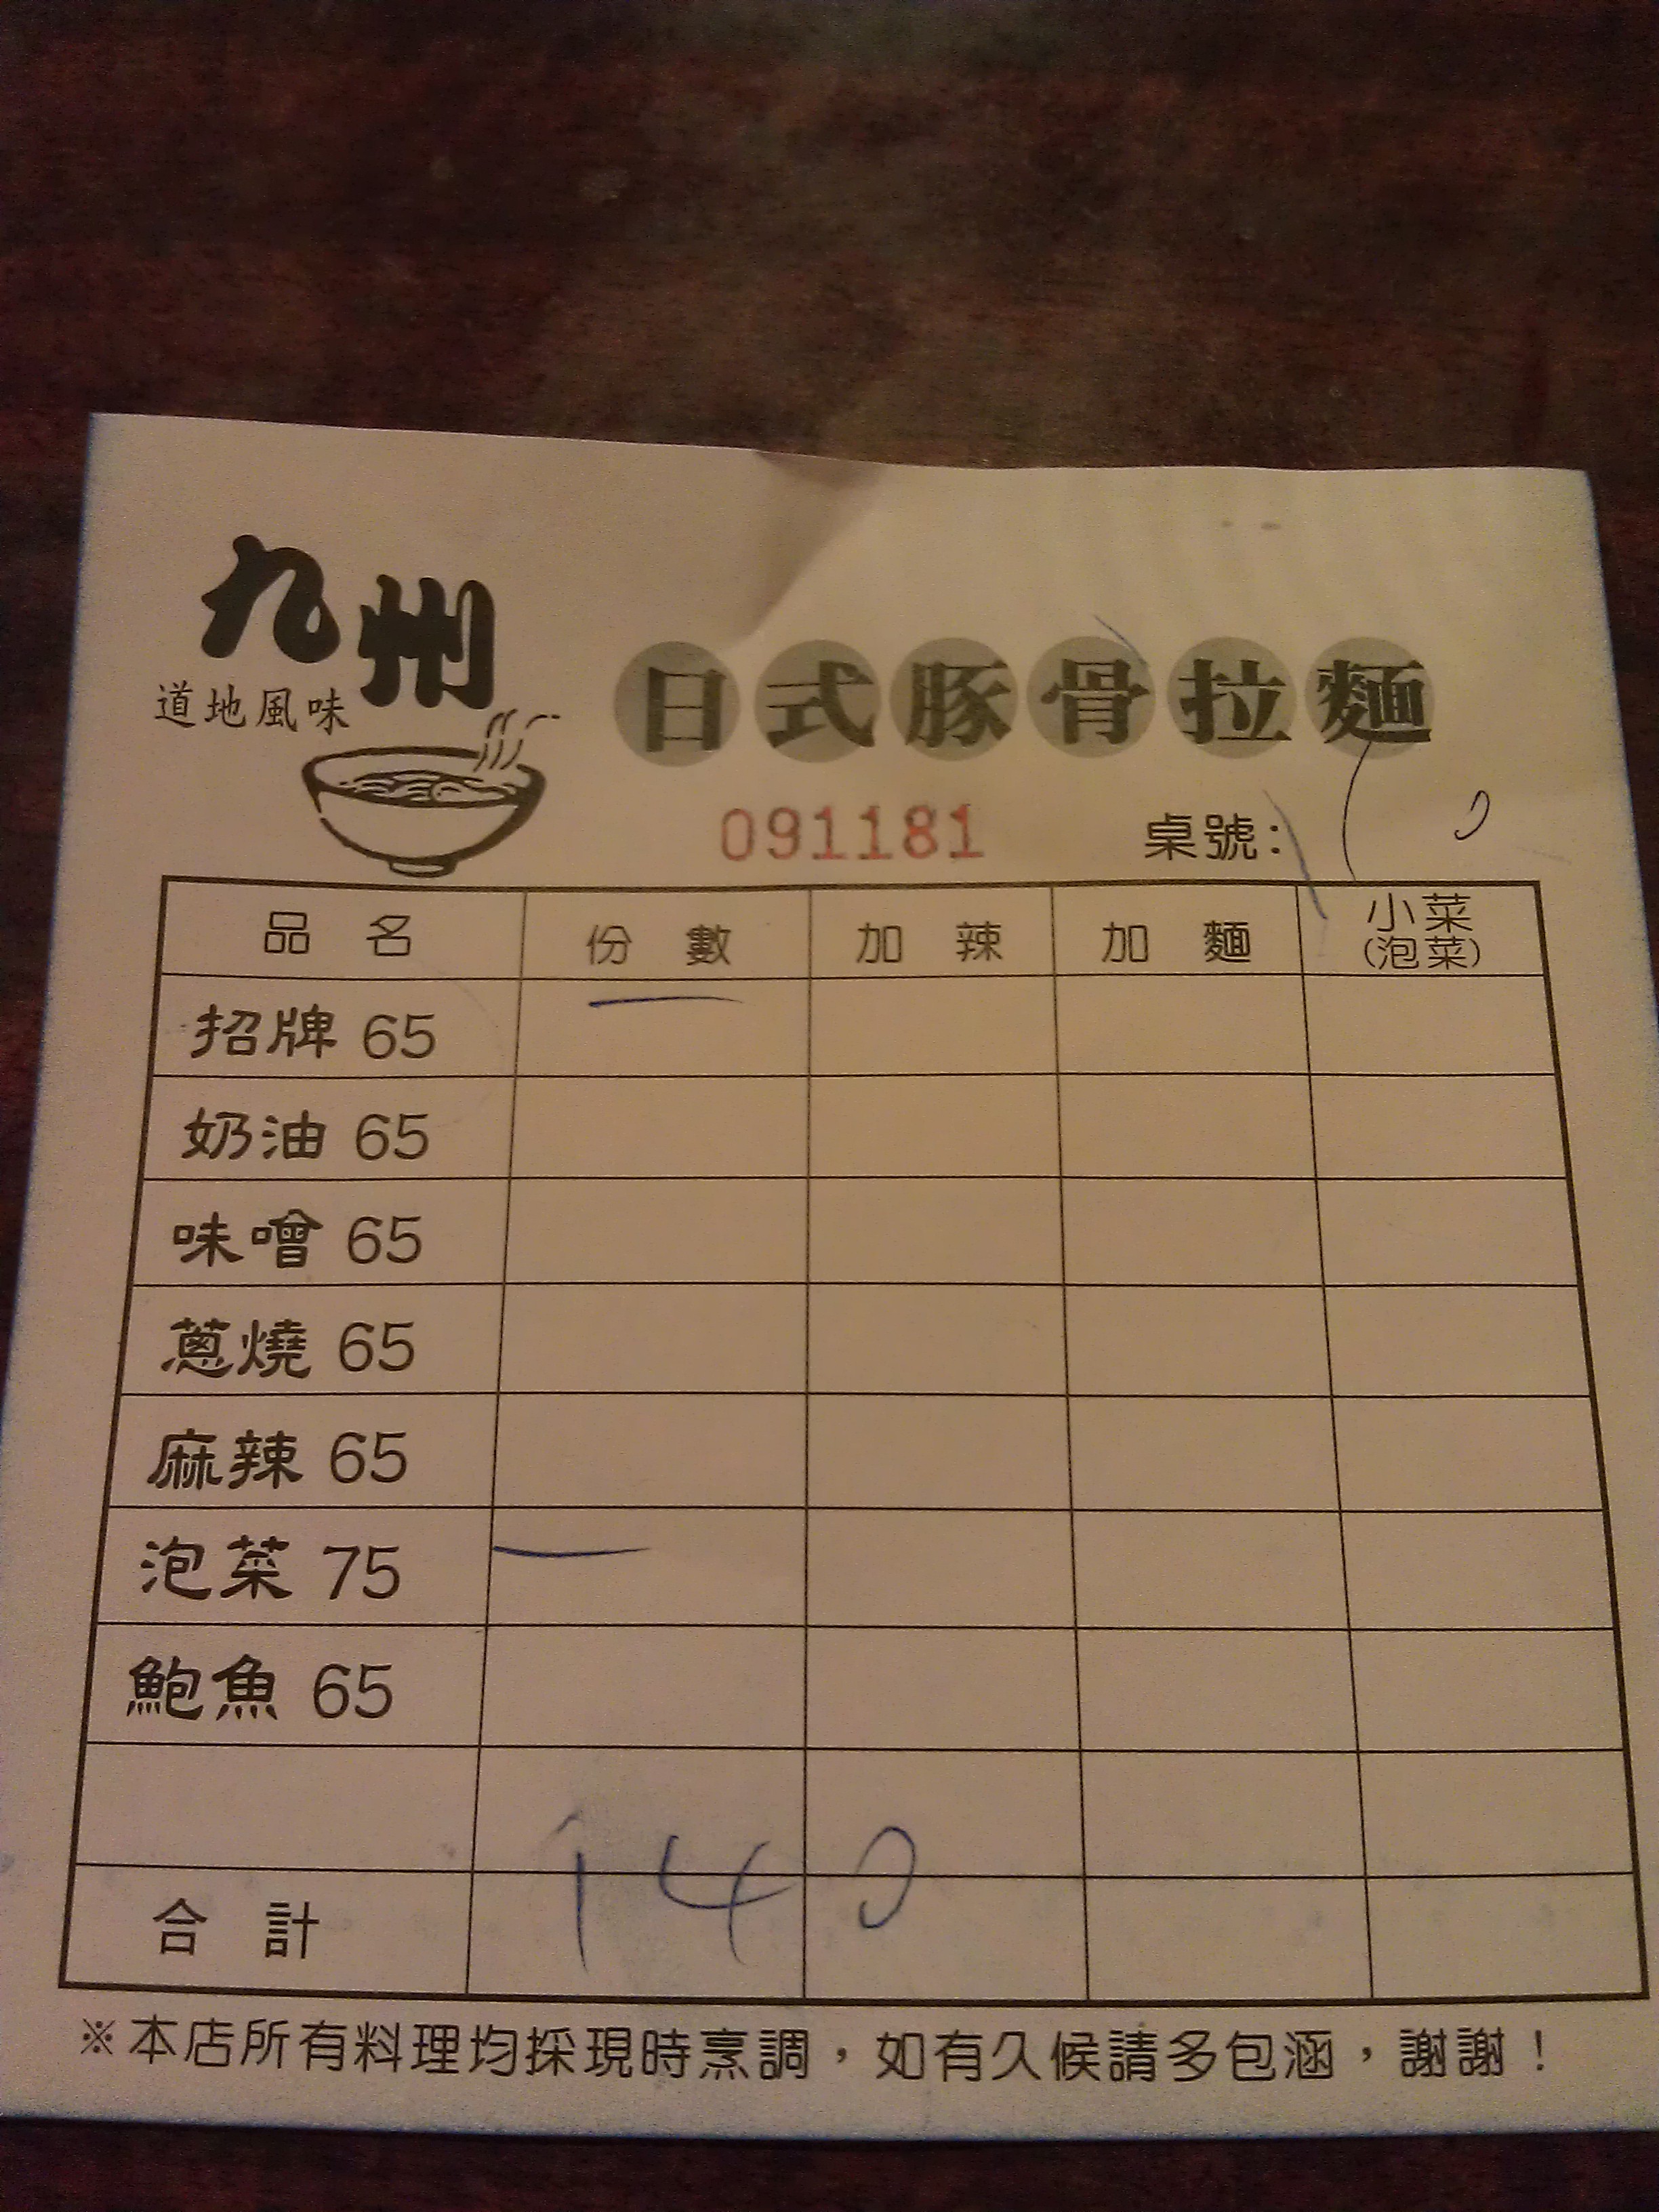 九州
道地風味
日式豚骨拉麵
091181 桌號:
品名 份數 加辣 加麵 小菜
(泡菜)
招牌 65 一
奶油 65
味噌 65
蔥燒 65
麻辣 65
泡菜 75 一
鮑魚 65
140
合計
※本店所有料理均採現時烹調,如有久候請多包涵,謝謝!